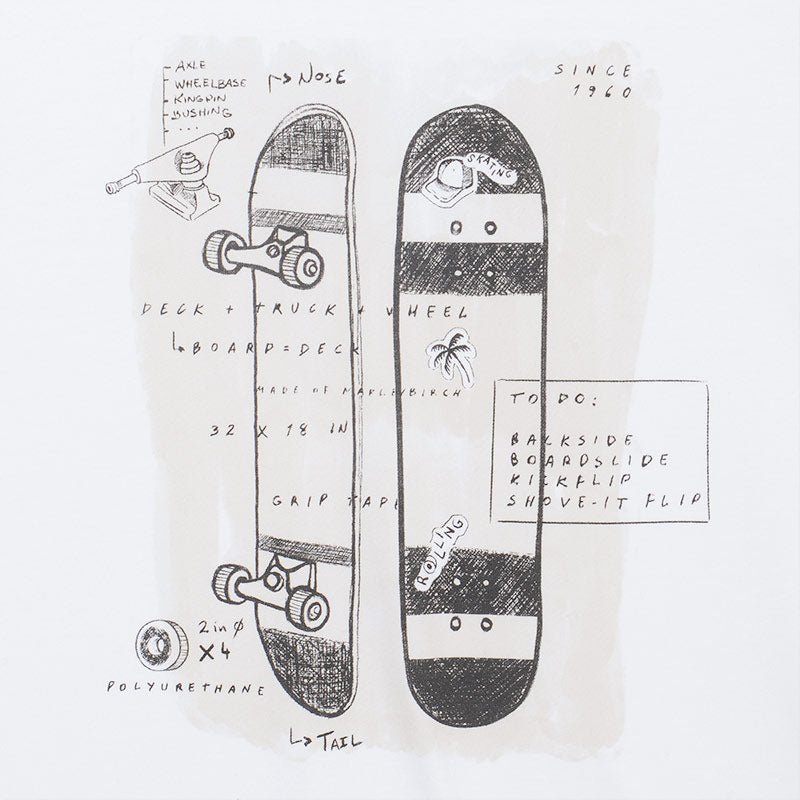 AXLE
WHEELBASE
KINGPIN
BUSHING
...
NOSE
SINCE
1960
SKATING
DECK + TRUCK + WHEEL
BOARD = DECK
MADE OF MAPLE/BIRCH
32 X 18 IN
TO DO:
BACKSIDE
BOARDSLIDE
KICKFLIP
SHOVE-IT FLIP
GRIP TAPE
ROLLING
2 in ϕ
X4
POLYURETHANE
TAIL